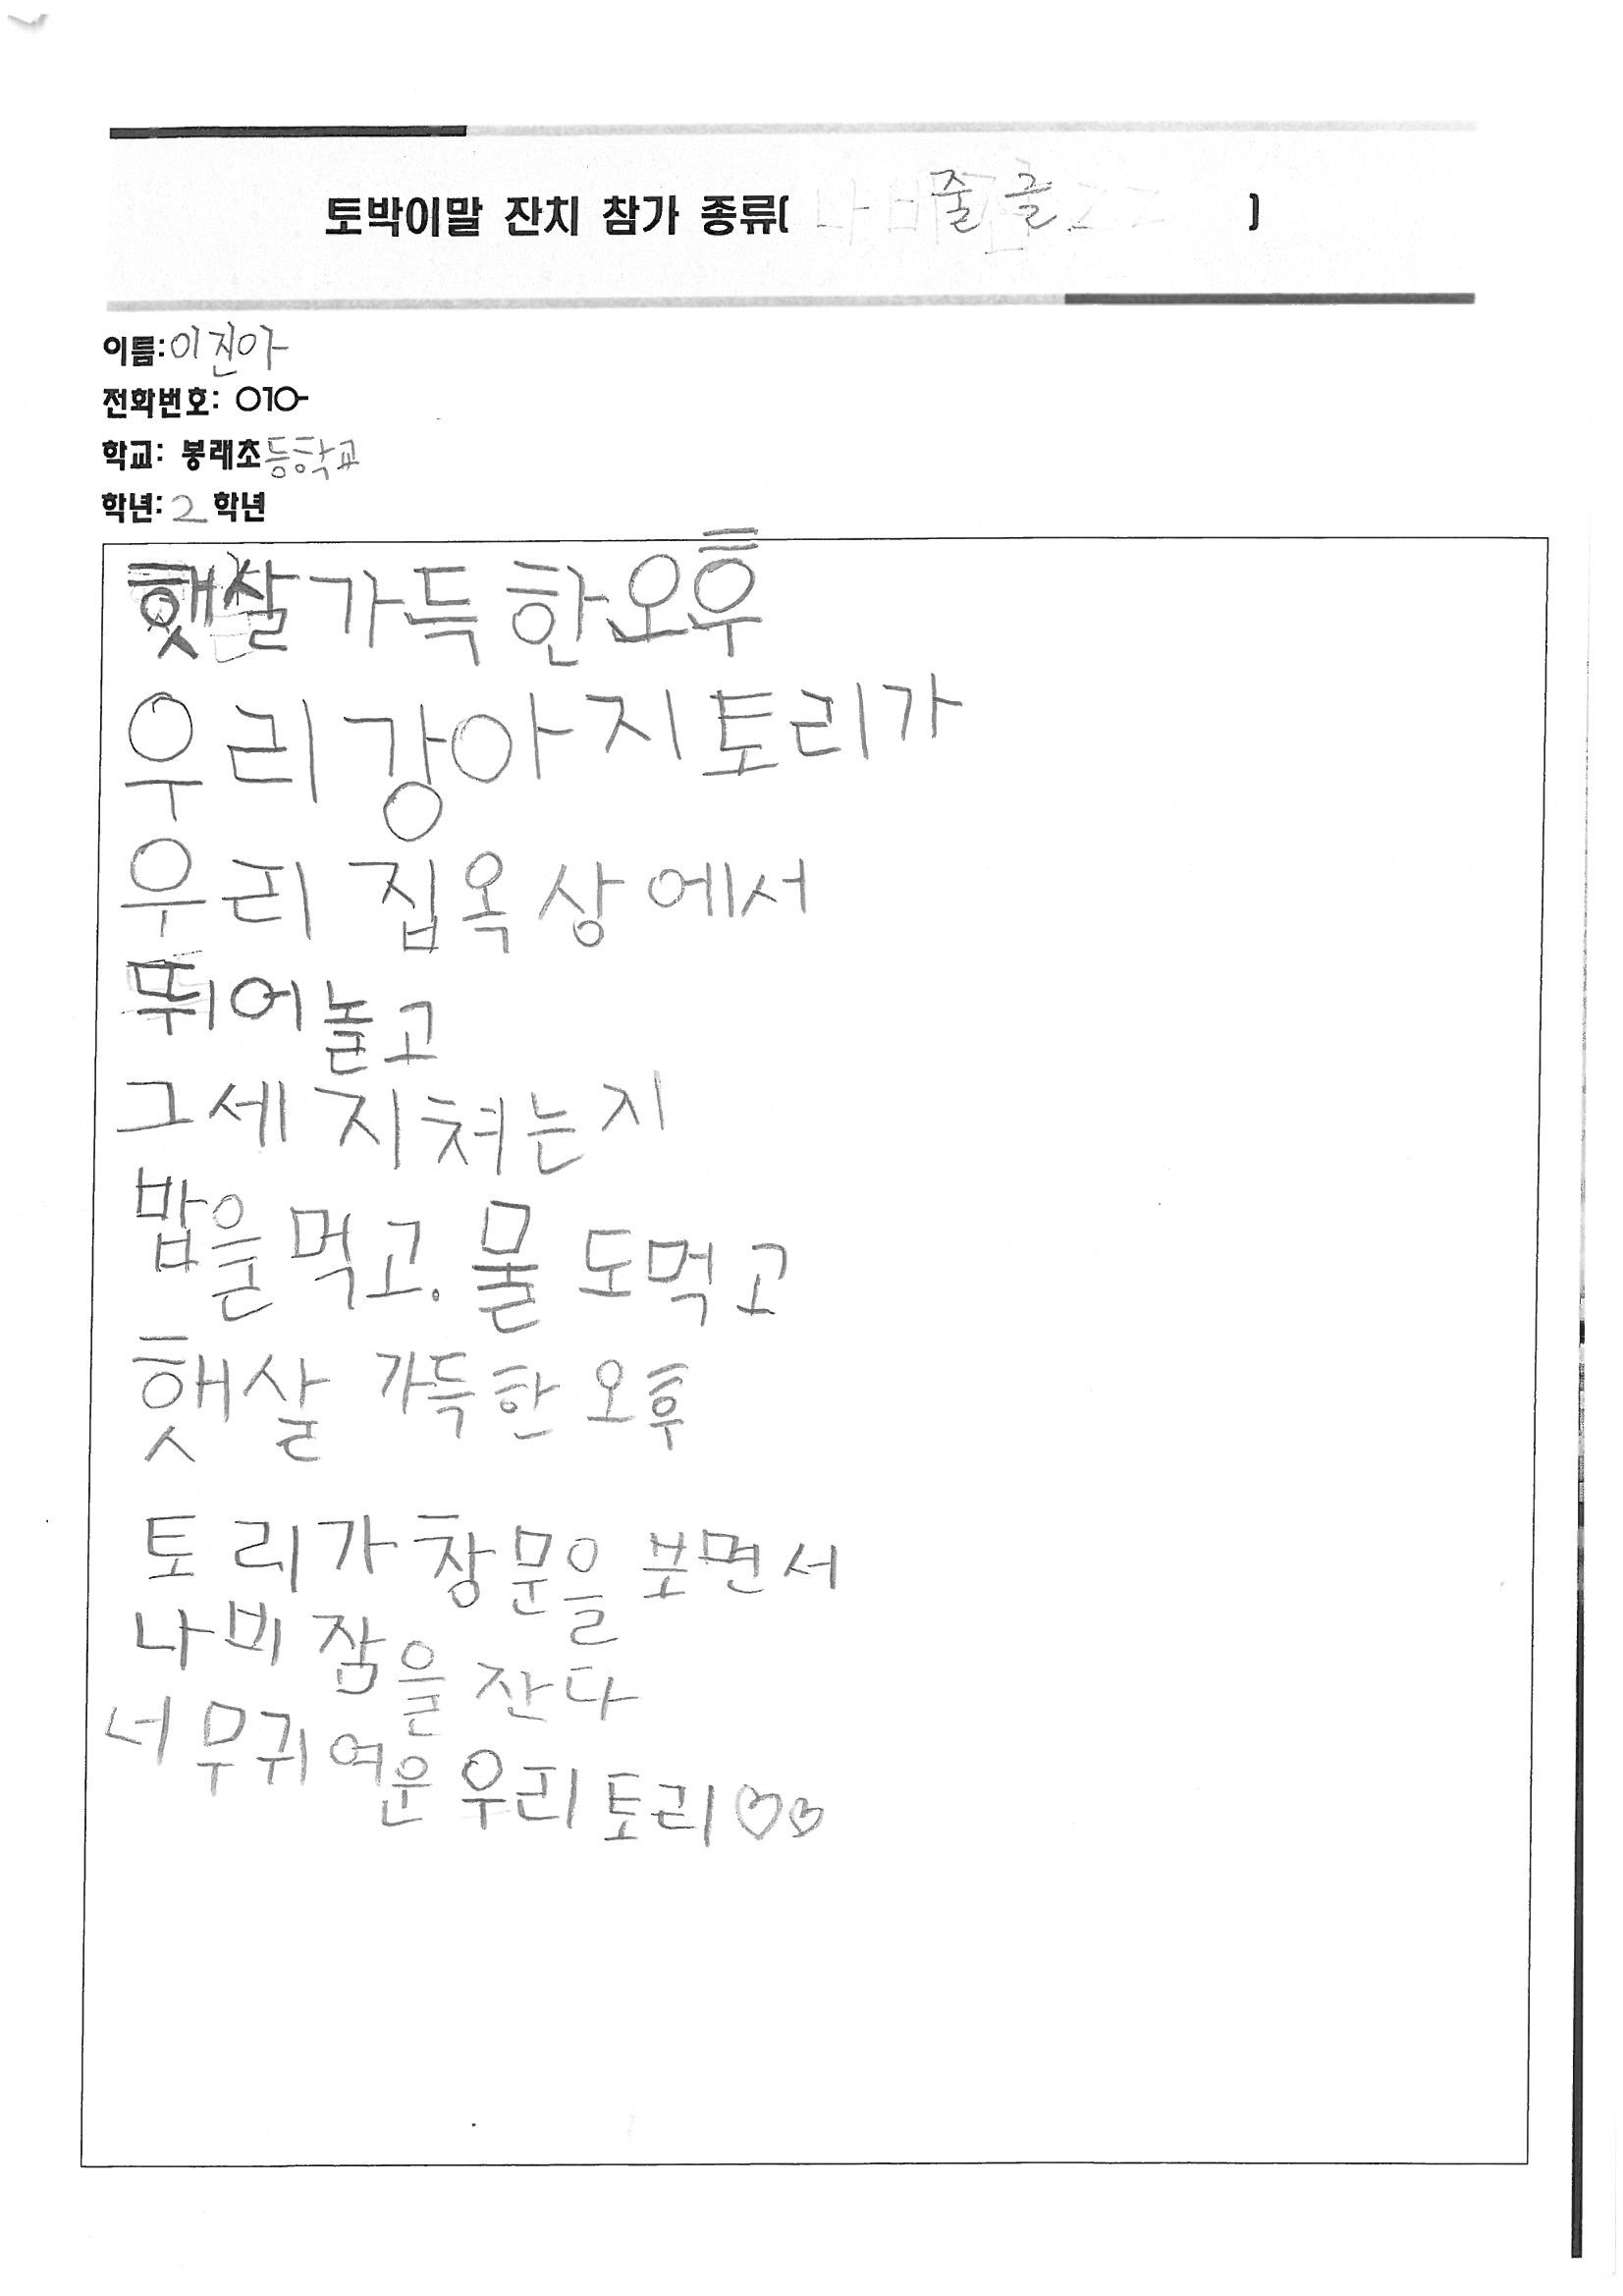 토박이말 잔치 참가 종류( 줄글 )
이름: 이진아
전화번호: 010-
학교: 봉래초등학교
학년: 2 학년
햇살 가득 한 오후
우리 강아지 토리가
우리 집 옥상에서
뛰어놀고
그세 지쳐는지
밥을 먹고. 물도 먹고
햇살 가득한 오후
토리가 창문을 보면서
나비잠을 잔다
너무 귀여운 우리 토리♡♡